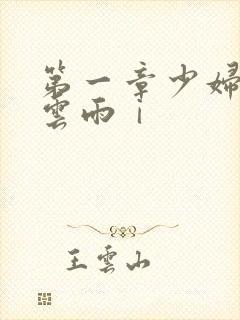 第一章少婦
雲雨｜
王雲山